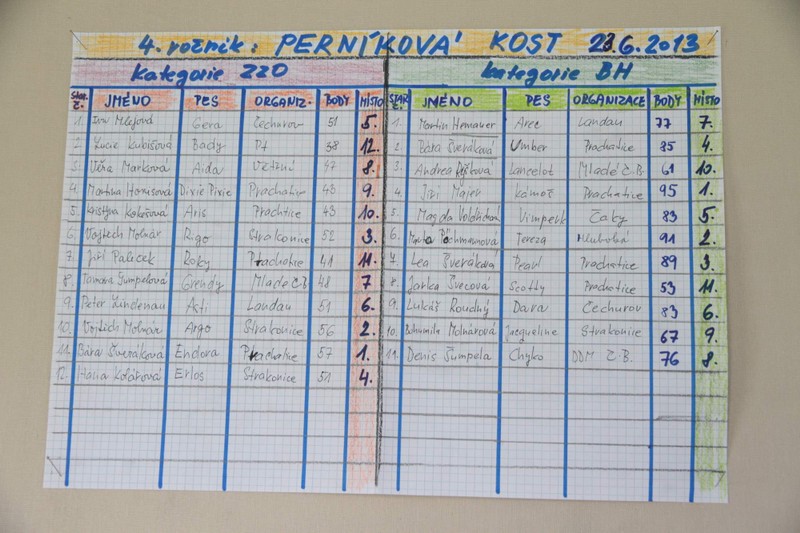 4. ročník: PERNÍKOVÁ KOST 23.6.2013
kategorie ZZO
kategorie BH
Star. č. JMÉNO PES ORGANIZ. BODY MÍSTO
1. Mlejová Gera Čechurov 51 5.
2. Lucie Kubišová Bady Pt 38 12.
3. Věra Marksová Aida 47 8.
4. Martina Dixie Pixie Prachatice 43 9.
5. Kristýna Aris Prachtice 43 10.
6. Vojtěch Molnár Rigo Strakonice 52 3.
7. Jiří Paleček Roky Prachatice 41 11.
8. Tamara Šumpelová Grendy Mladé Č.B 48 7
9. Peter Lindenau Asti Landau 51 6.
10. Vojtěch Molnár Argo Strakonice 56 2.
11. Bára Šveráková Endora Prachatice 57 1.
12. Hana Kolářová Erlos Strakonice 51 4.
STAR. č. JMÉNO PES ORGANIZACE BODY MÍSTO
1. Martin Hemauer Arec Landau 77 7.
2. Bára Šveráková Umber Prachatice 85 4.
3. Andrea Lancelot Mladé Č.B. 61 10.
4. Jiří Majer Prachatice 95 1.
5. Magda Vimperk Čaky 83 5.
6. Tereza Hluboká 91 2.
7. Lea Šveráková Pearl Prachatice 89 3.
8. Jarka Švecová Scotty Prachatice 53 11.
9. Lukáš Roudný Dara Čechurov 83 6.
10. Bohumila Molnárová Jacqueline Strakonice 67 9.
11. Denis Šumpela Chyko DDM Č.B. 76 8.